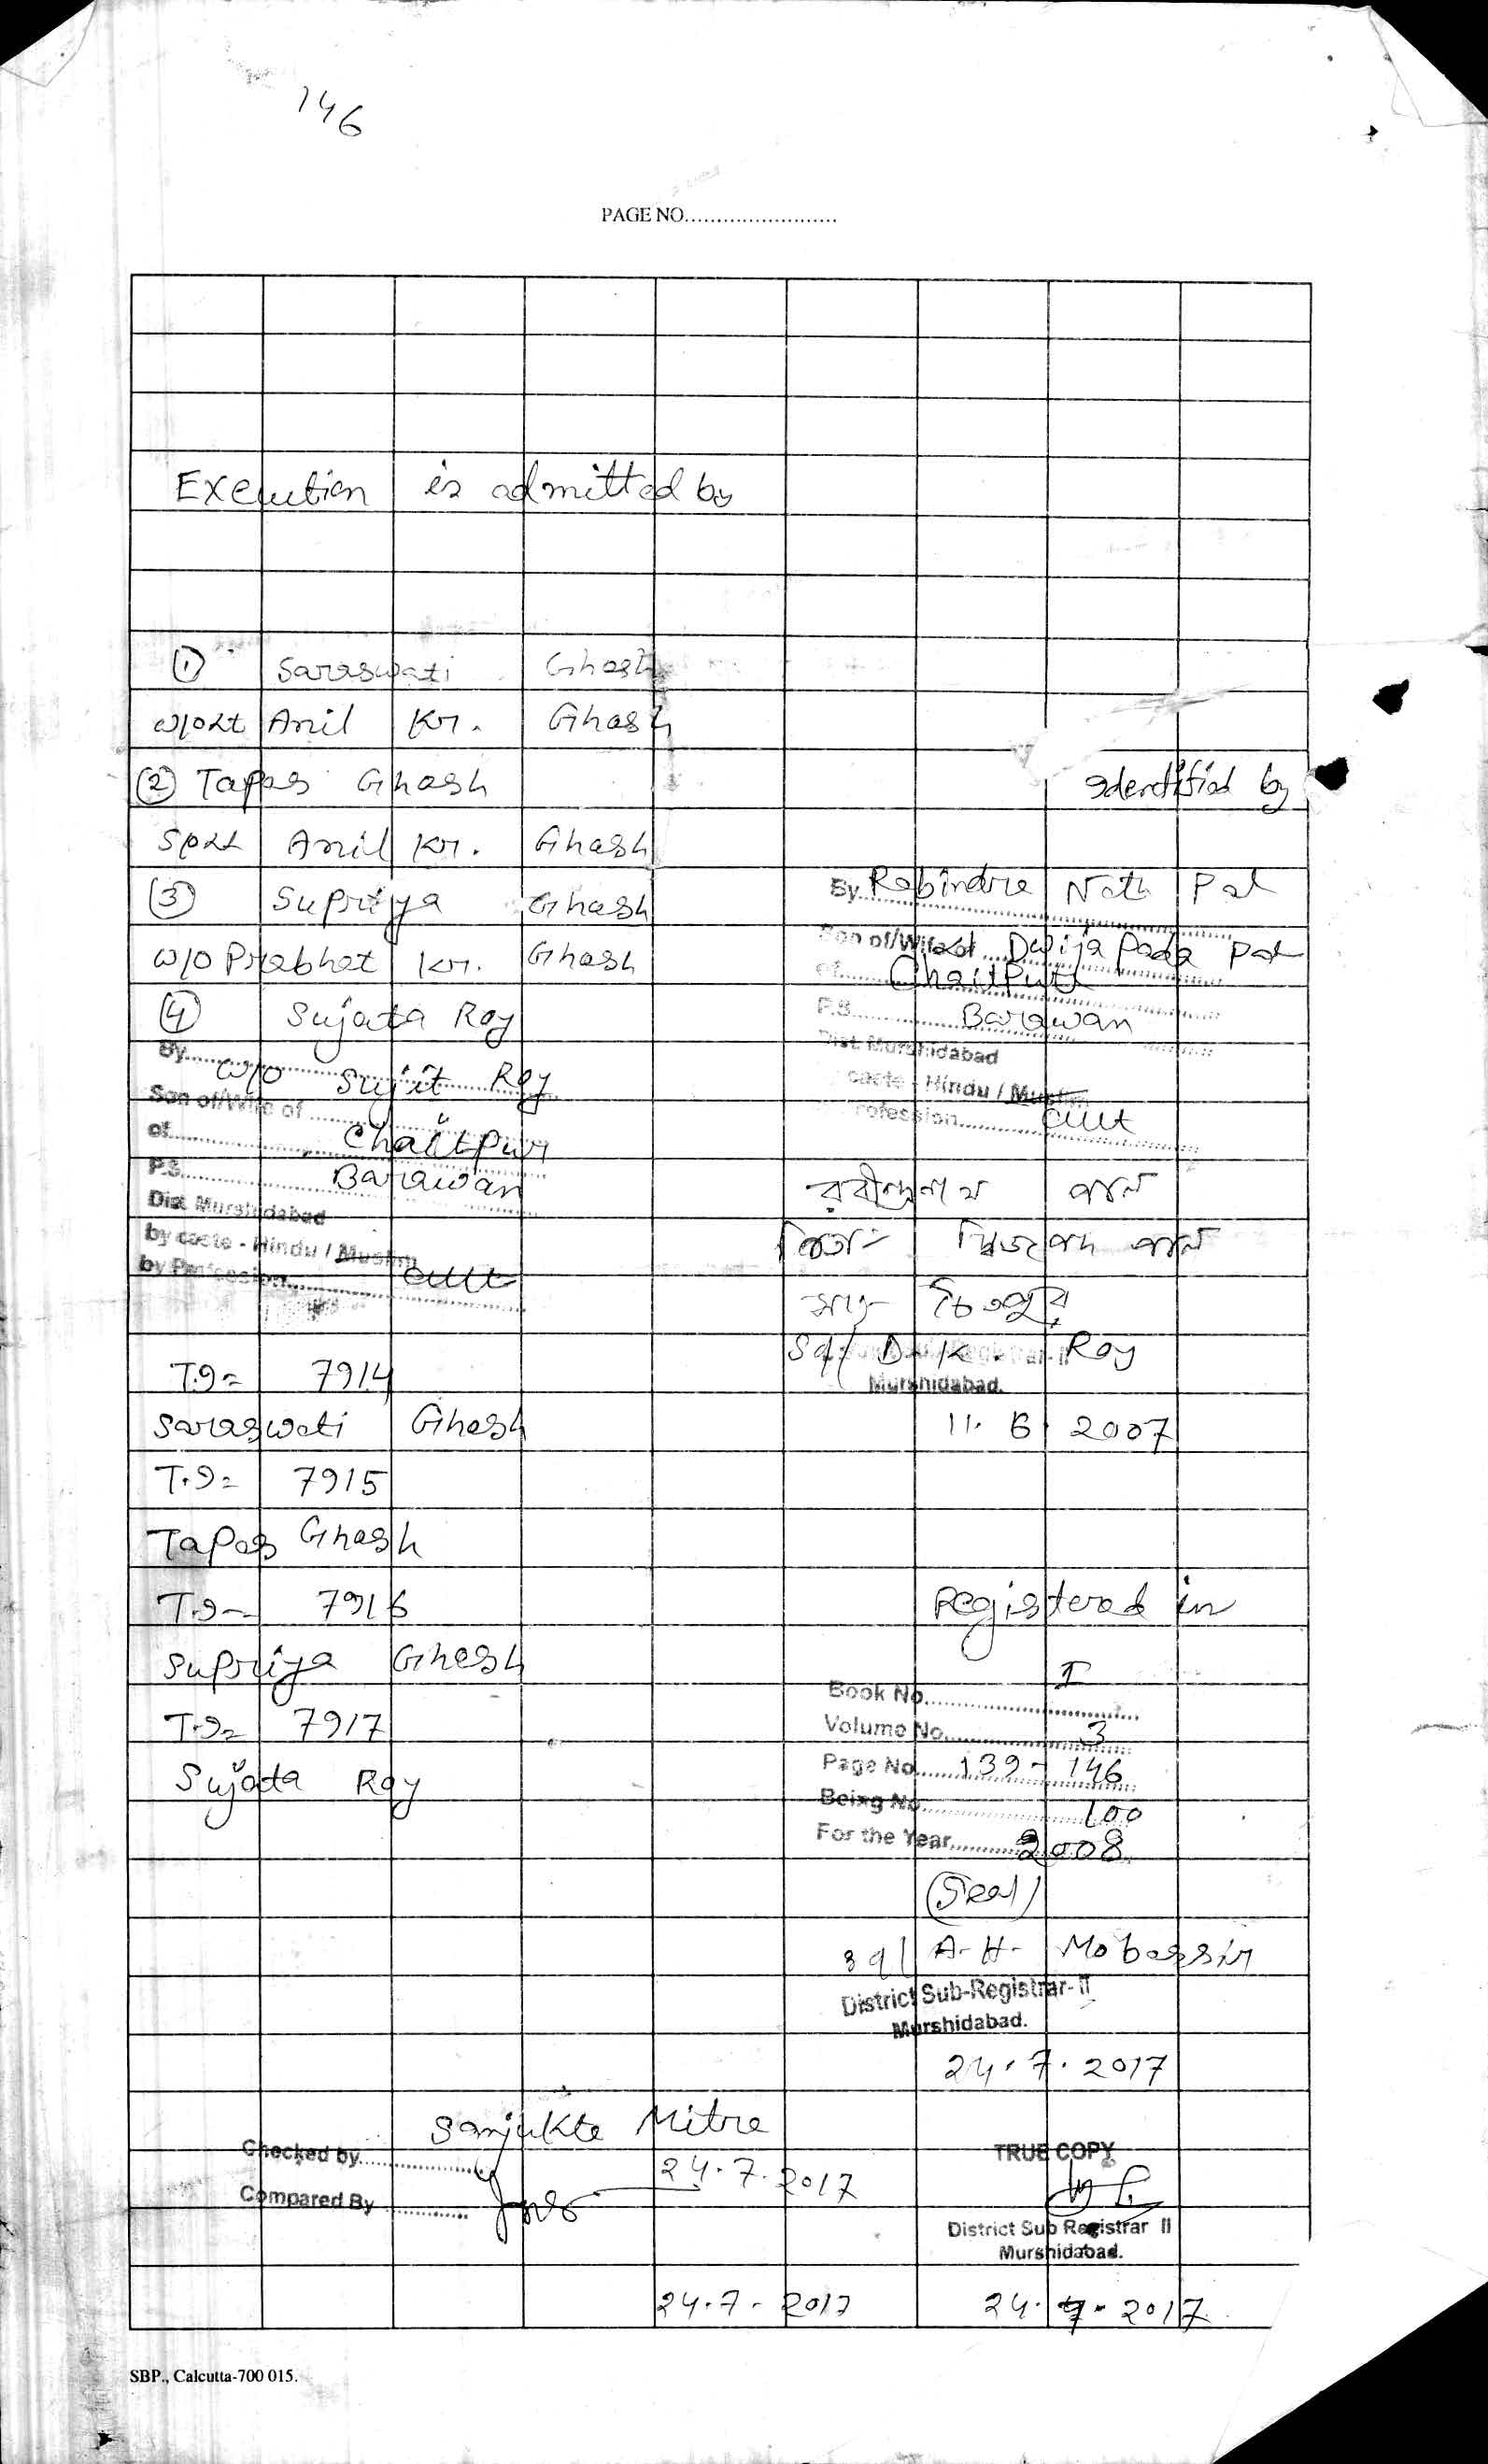 146
PAGE NO........................
Execution is admitted by
① Saraswati Ghosh
w/o Lt Anil Kr. Ghosh
② Tapas Ghosh
S/o Lt Anil Kr. Ghosh
③ Supriya Ghosh
w/o Prabhat Kr. Ghosh
④ Sujata Roy
By........ w/o Sujit Roy
Son of/Wife of ........
of........ Chaitpur
P.S........ Barawan
Dist. Murshidabad
by caste - Hindu / Muslim
by Profession........ cult
T.I= 7914
Saraswati Ghosh
T.I= 7915
Tapas Ghosh
T.I= 7916
Supriya Ghosh
T.I= 7917
Sujata Roy
Identified by
By Rabindra Nath Pal
Son of/Wife of Lt Dwija Pada Pal
of Chaitpur
P.S........ Barawan
Dist. Murshidabad
caste - Hindu / Muslim
rofession........ cult
রবীন্দ্রনাথ পাল
পিতা- দ্বিজপদ পাল
সাং- চৈতপুর
Sd/ D. K. Roy
Murshidabad.
11. 6. 2007
Registered in
Book No........ I
Volume No........ 3
Page No........ 139 - 146
Being No........ 100
For the Year........ 2008
(Seal)
Sd/ A. H. Mobassir
District Sub-Registrar-II
Murshidabad.
24.7.2017
Checked by........ Sanjukta Mitra
24.7.2017
Compared By ........
24.7.2017
TRUE COPY
District Sub Registrar II
Murshidabad.
24.7.2017
SBP., Calcutta-700 015.